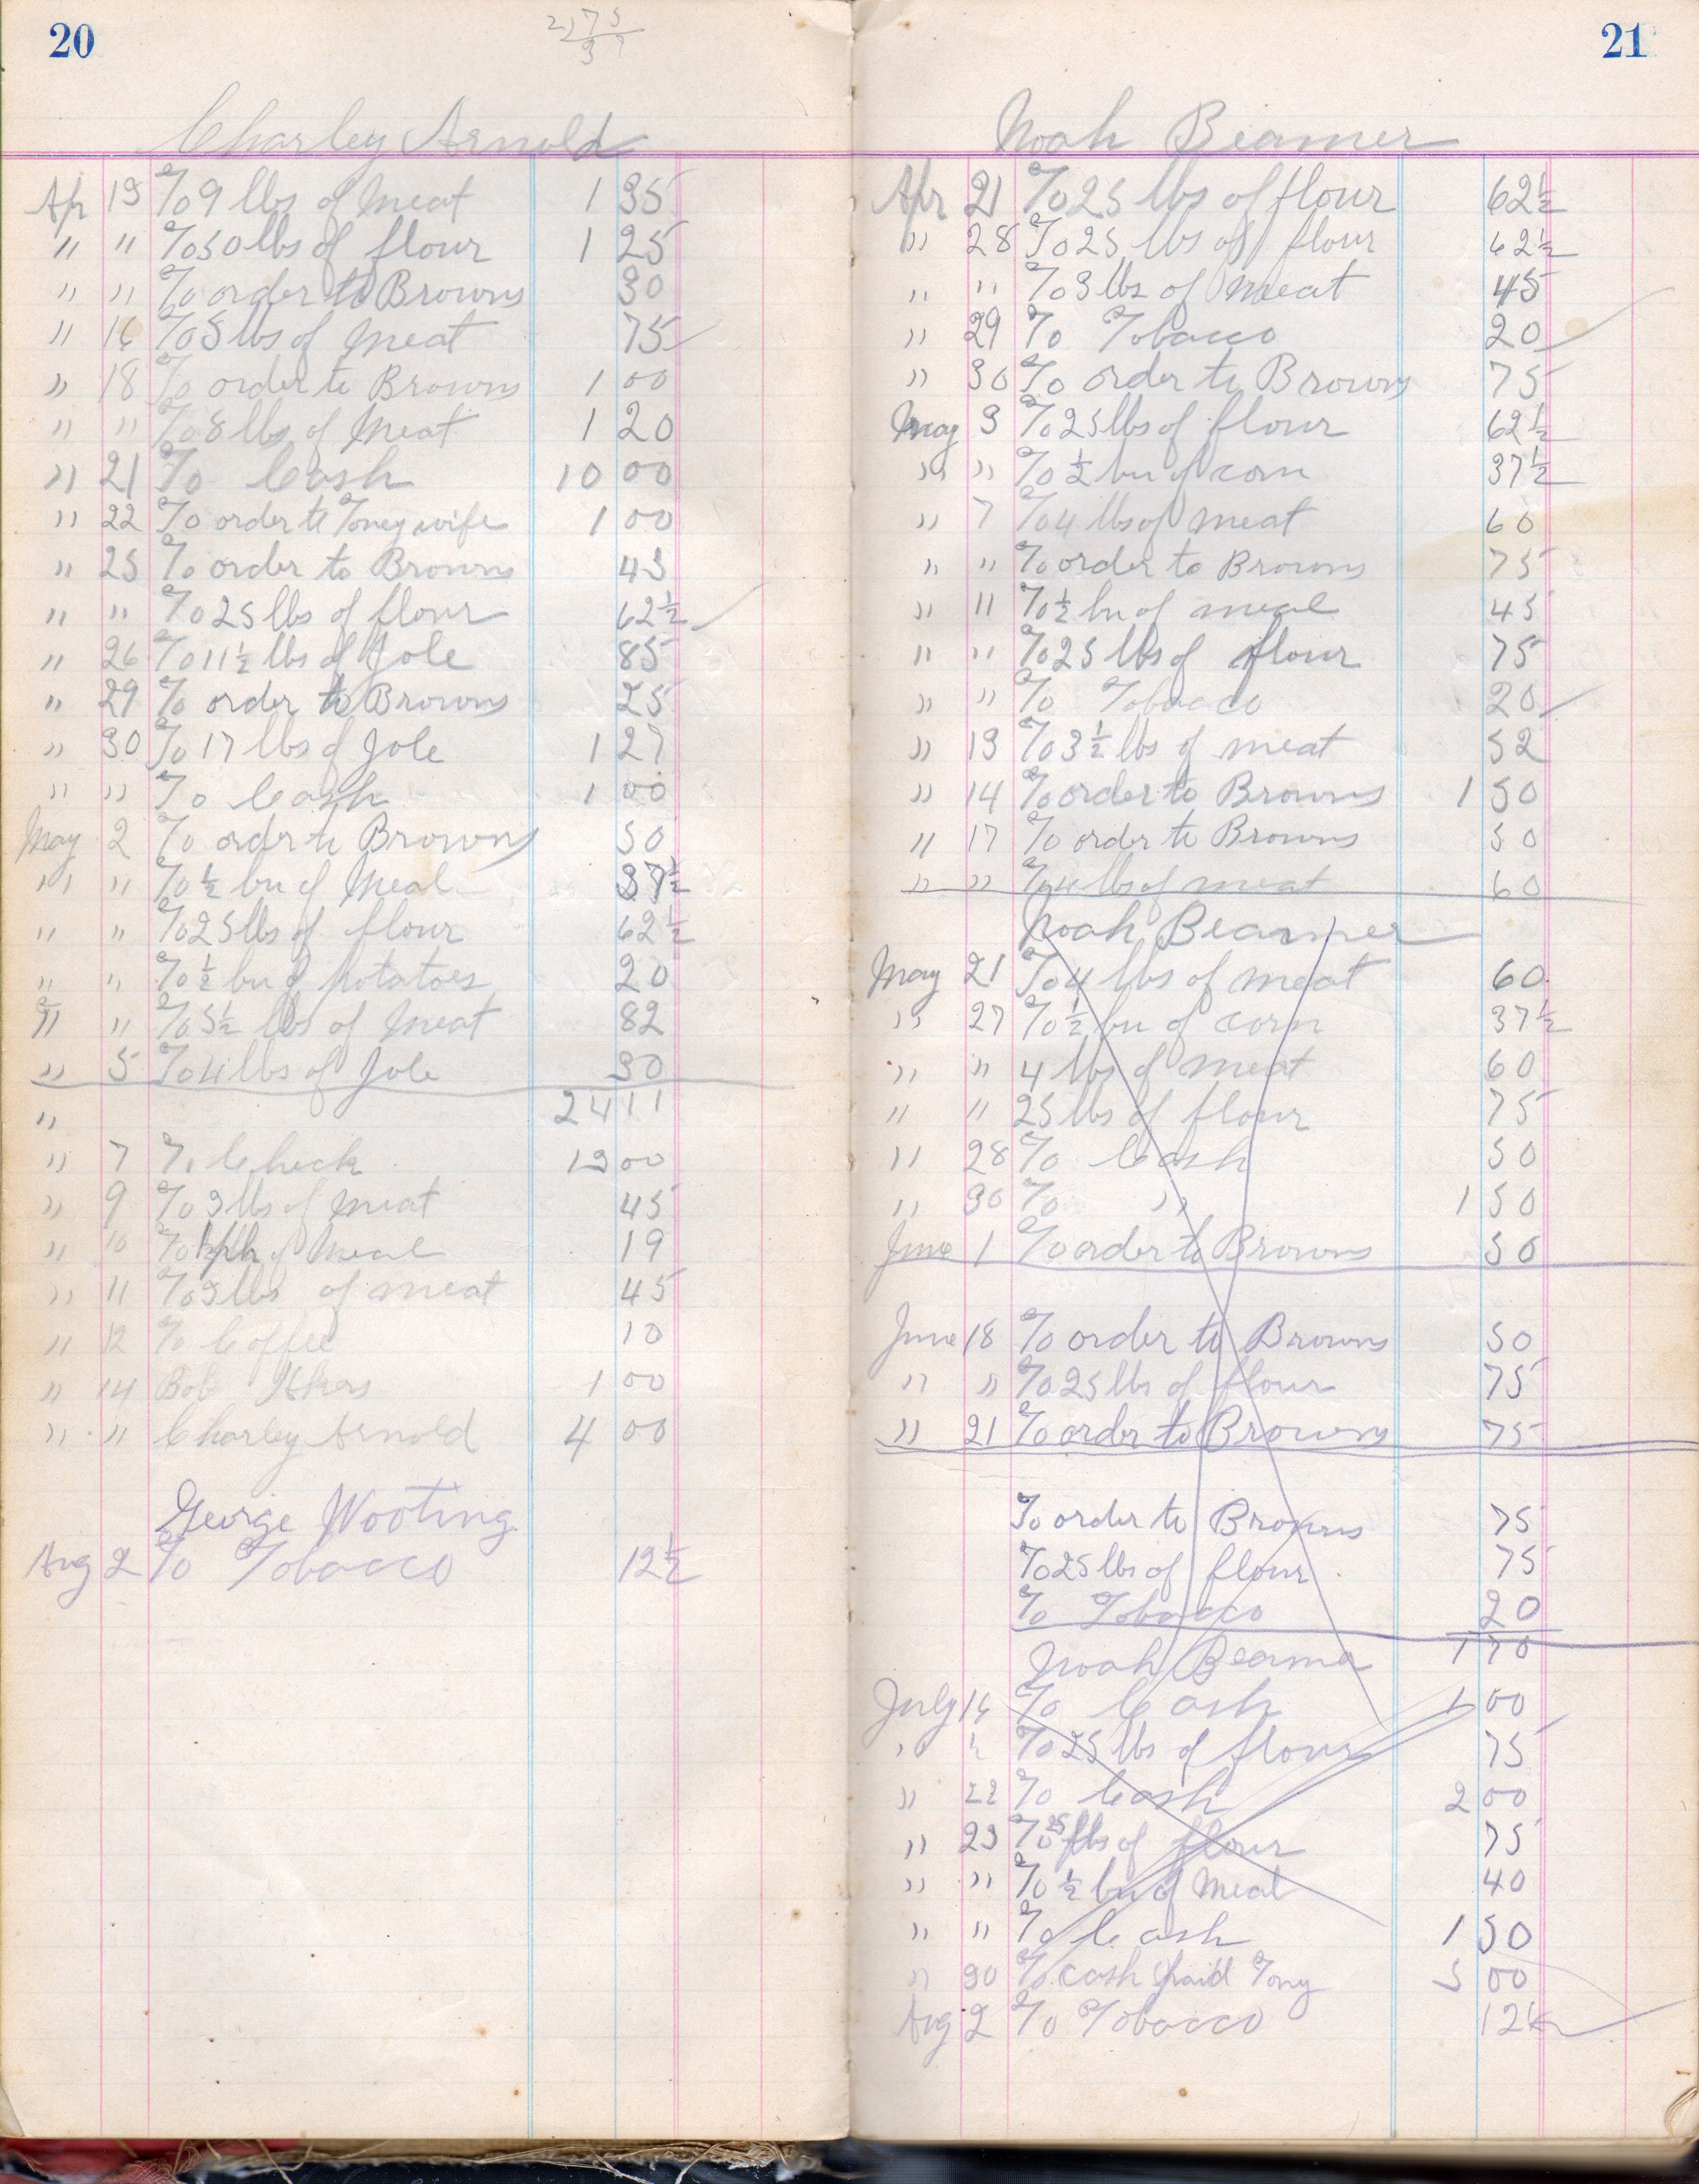 20
2)75
Charley Arnold
Apr 15 To 9 lbs of Meat 1 35
" " To 50 lbs of flour 1 25
" " To order to Browns 30
" 16 To 5 lbs of Meat 75
" 18 To order to Browns 1 00
" " To 8 lbs of Meat 1 20
" 21 To Cash 10 00
" 22 To order to Toney wife 1 00
" 25 To order to Browns 43
" " To 25 lbs of flour 62½
" 26 To 11½ lbs of Jole 85
" 29 To order to Browns 25
" 30 To 17 lbs of Jole 1 27
" " To Cash 1 00
May 2 To order to Browns 50
" " To ½ bu of Meal 37½
" " To 25 lbs of flour 62½
" " To ½ bu of Potatoes 20
" " To 5½ lbs of Meat 82
" 5 To 4 lbs of Jole 30
" 24 11
" 7 To Check 13 00
" 9 To 3 lbs of Meat 45
" 10 To of Meal 19
" 11 To 3 lbs of meat 45
" 12 To Coffee 10
" 14 Bob Akers 1 00
" " Charley Arnold 4 00
George Wooting
Aug 2 To Tobacco 12½
21
Noah Beamer
Apr 21 To 25 lbs of flour 62½
" 28 To 25 lbs of flour 62½
" " To 3 lbs of Meat 45
" 29 To Tobacco 20
" 30 To order to Browns 75
May 3 To 25 lbs of flour 62½
" " To ½ bu of corn 37½
" 7 To 4 lbs of meat 60
" " To order to Browns 75
" 11 To ½ bu of meal 45
" " To 25 lbs of flour 75
" " To Tobacco 20
" 13 To 3½ lbs of meat 52
" 14 To order to Browns 1 50
" 17 To order to Browns 50
" " To 4 lbs of meat 60
Noah Beamer
May 21 To 4 lbs of meat 60
" 27 To ½ bu of corn 37½
" " 4 lbs of meat 60
" " 25 lbs of flour 75
" 28 To Cash 50
" 30 To " 1 50
June 1 To order to Browns 50
June 18 To order to Browns 50
" " To 25 lbs of flour 75
" 21 To order to Browns 75
To order to Browns 75
To 25 lbs of flour 75
To Tobacco 20
1 70
Noah Beamer
July 16 To Cash 1 00
" " To 25 lbs of flour 75
" 22 To Cash 2 00
" 23 To 25 lbs of flour 75
" " To ½ bu of Meal 40
" " To Cash 1 50
" 30 To cash paid Tony 5 00
Aug 2 To Tobacco 12½